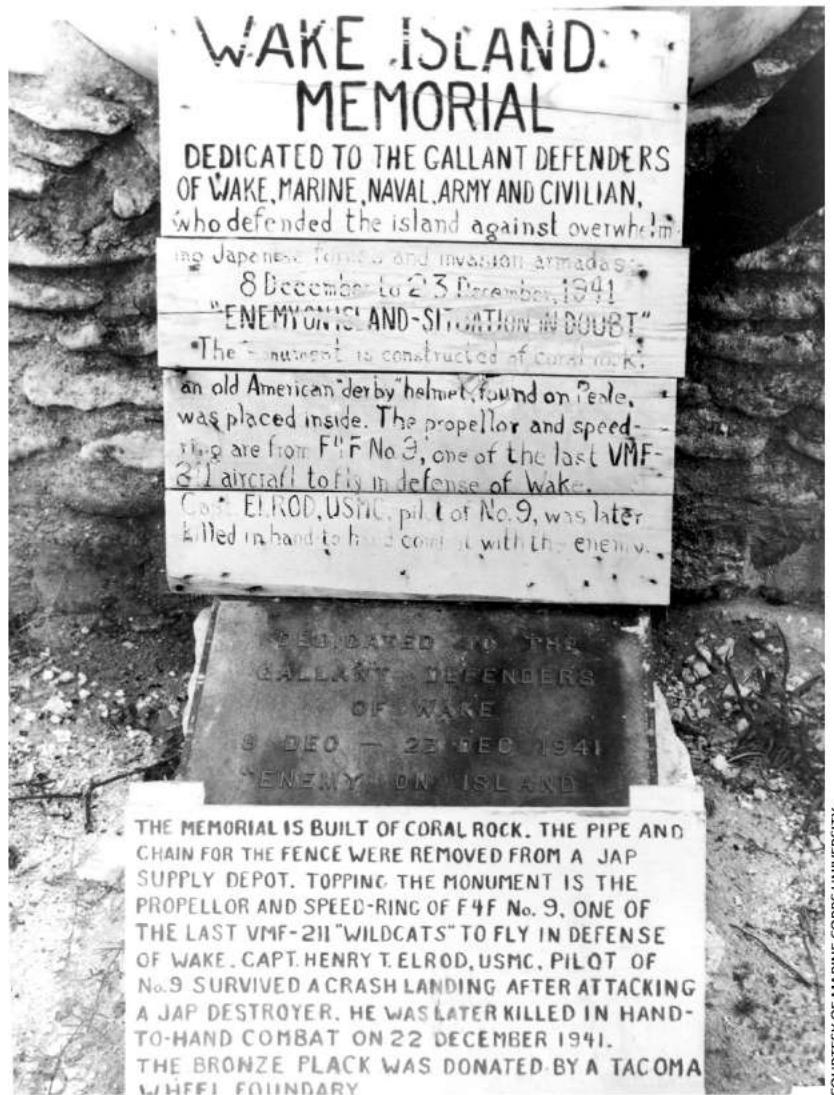 WAKE ISLAND
MEMORIAL
DEDICATED TO THE GALLANT DEFENDERS
OF WAKE, MARINE, NAVAL, ARMY AND CIVILIAN,
who defended the island against overwhelm-
ing Japanese forces and invasion armadas.
8 December to 23 December, 1941
"ENEMY ON ISLAND-SITUATION IN DOUBT"
The monument is constructed of coral rock,
an old American "derby" helmet, found on Peale,
was placed inside. The propellor and speed-
ring are from F4F No 9, one of the last VMF-
211 aircraft to fly in defense of Wake.
Capt. ELROD, USMC, pilot of No. 9, was later
killed in hand to hand combat with the enemy.
DEDICATED TO THE
GALLANT DEFENDERS
OF WAKE
8 DEC — 23 DEC 1941
"ENEMY ON ISLAND
THE MEMORIAL IS BUILT OF CORAL ROCK. THE PIPE AND
CHAIN FOR THE FENCE WERE REMOVED FROM A JAP
SUPPLY DEPOT. TOPPING THE MONUMENT IS THE
PROPELLOR AND SPEED-RING OF F4F No. 9, ONE OF
THE LAST VMF-211 "WILDCATS" TO FLY IN DEFENSE
OF WAKE. CAPT. HENRY T. ELROD, USMC, PILOT OF
No. 9 SURVIVED A CRASH LANDING AFTER ATTACKING
A JAP DESTROYER. HE WAS LATER KILLED IN HAND-
TO-HAND COMBAT ON 22 DECEMBER 1941.
THE BRONZE PLACK WAS DONATED BY A TACOMA
WHEEL FOUNDARY
COURTESY OF MARINE CORPS UNIVERSITY